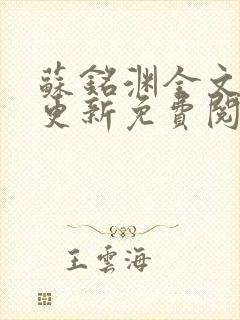 蘇銘渊全文
更新免費閱
王雲海